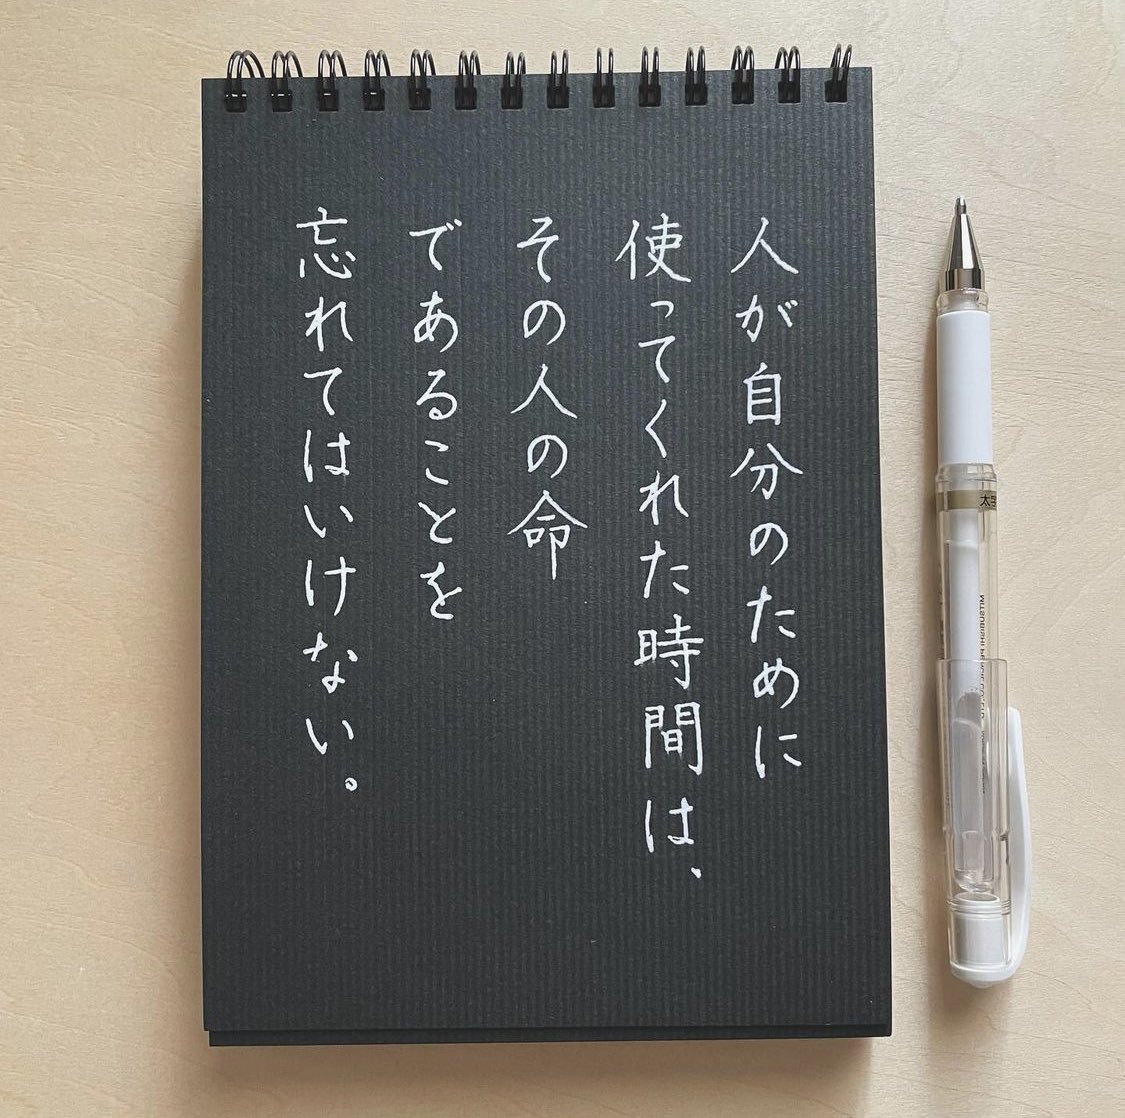 人が自分のために
使ってくれた時間は、
その人の命
であることを
忘れてはいけない。
太字